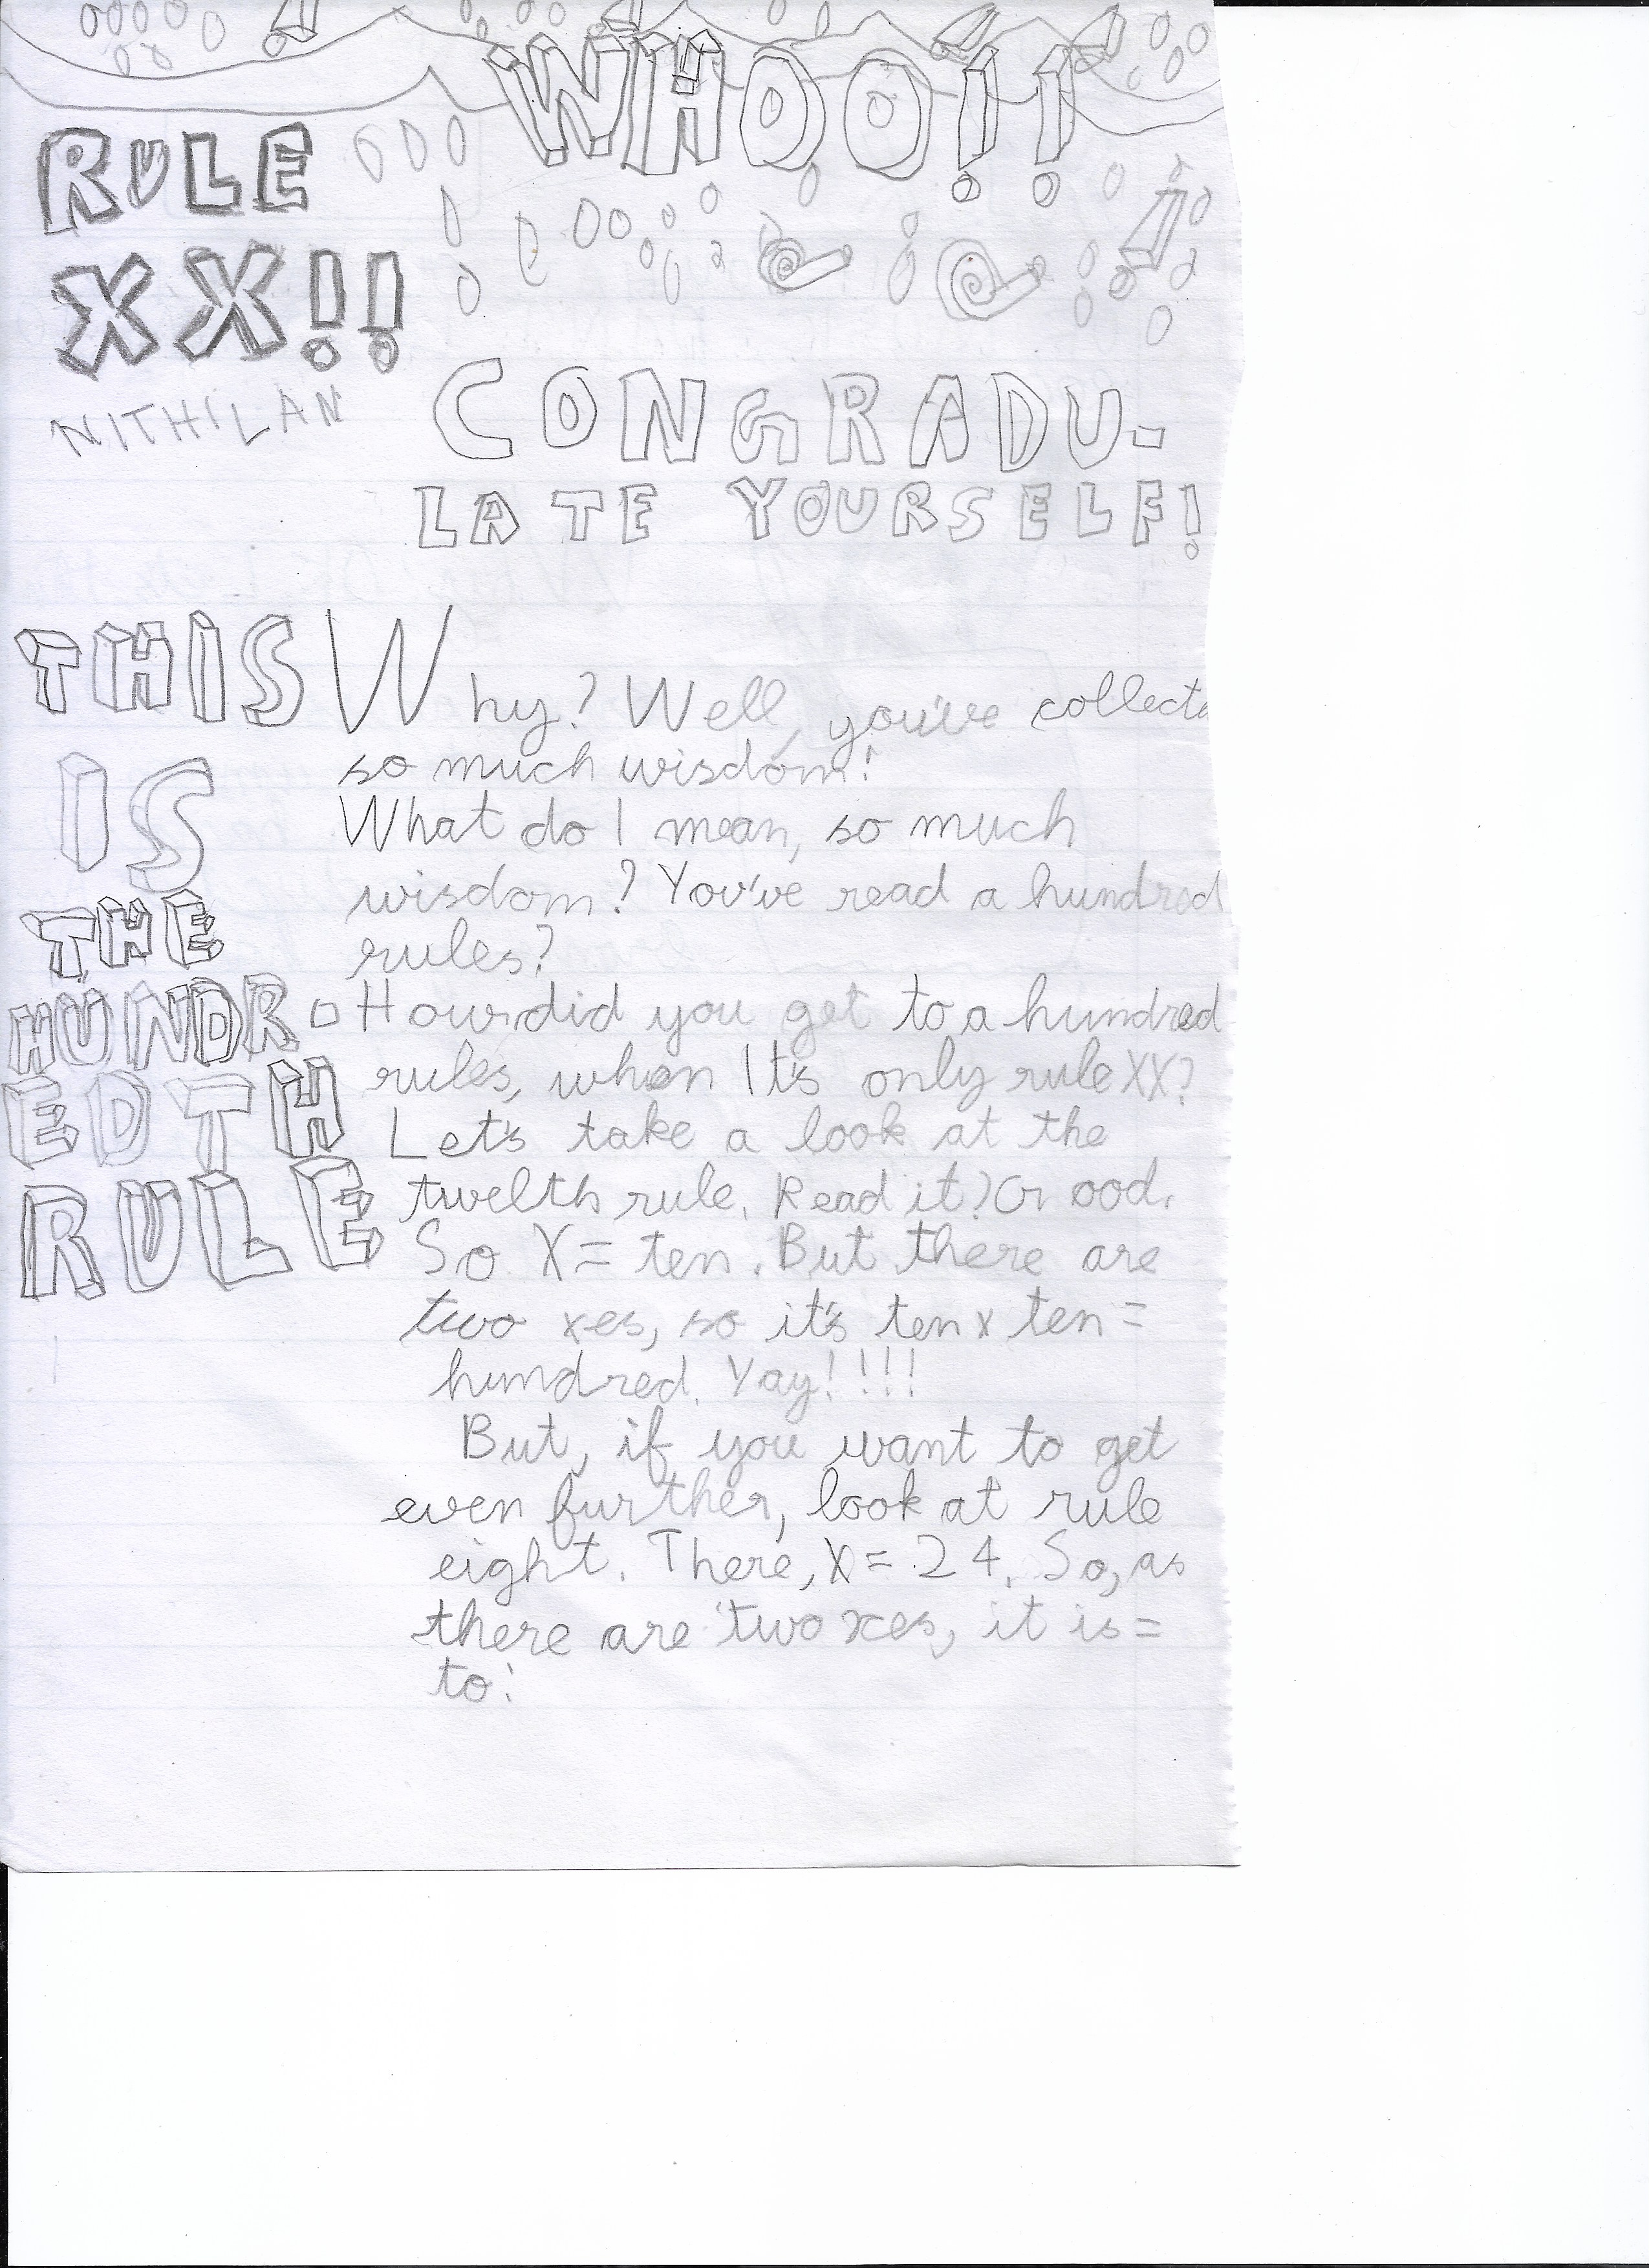 WHOO!!
RULE
XX!!
NITHILAN
CONGRADU-
LATE YOURSELF!
THIS
IS
THE
HUNDR-
EDTH
RULE
Why? Well, you've
so much wisdom!
What do I mean, so much
wisdom? You've read a hundred
rules?
How did you get to a hundred
rules, when It's only rule XX?
Let's take a look at the
twelth rule. Read it? Good.
So X= ten. But there are
two xes, so it's ten x ten =
hundred. Yay!!!!!
But, if you want to get
even further, look at rule
eight. There, X= 24. So, as
there are two xes, it is =
to: